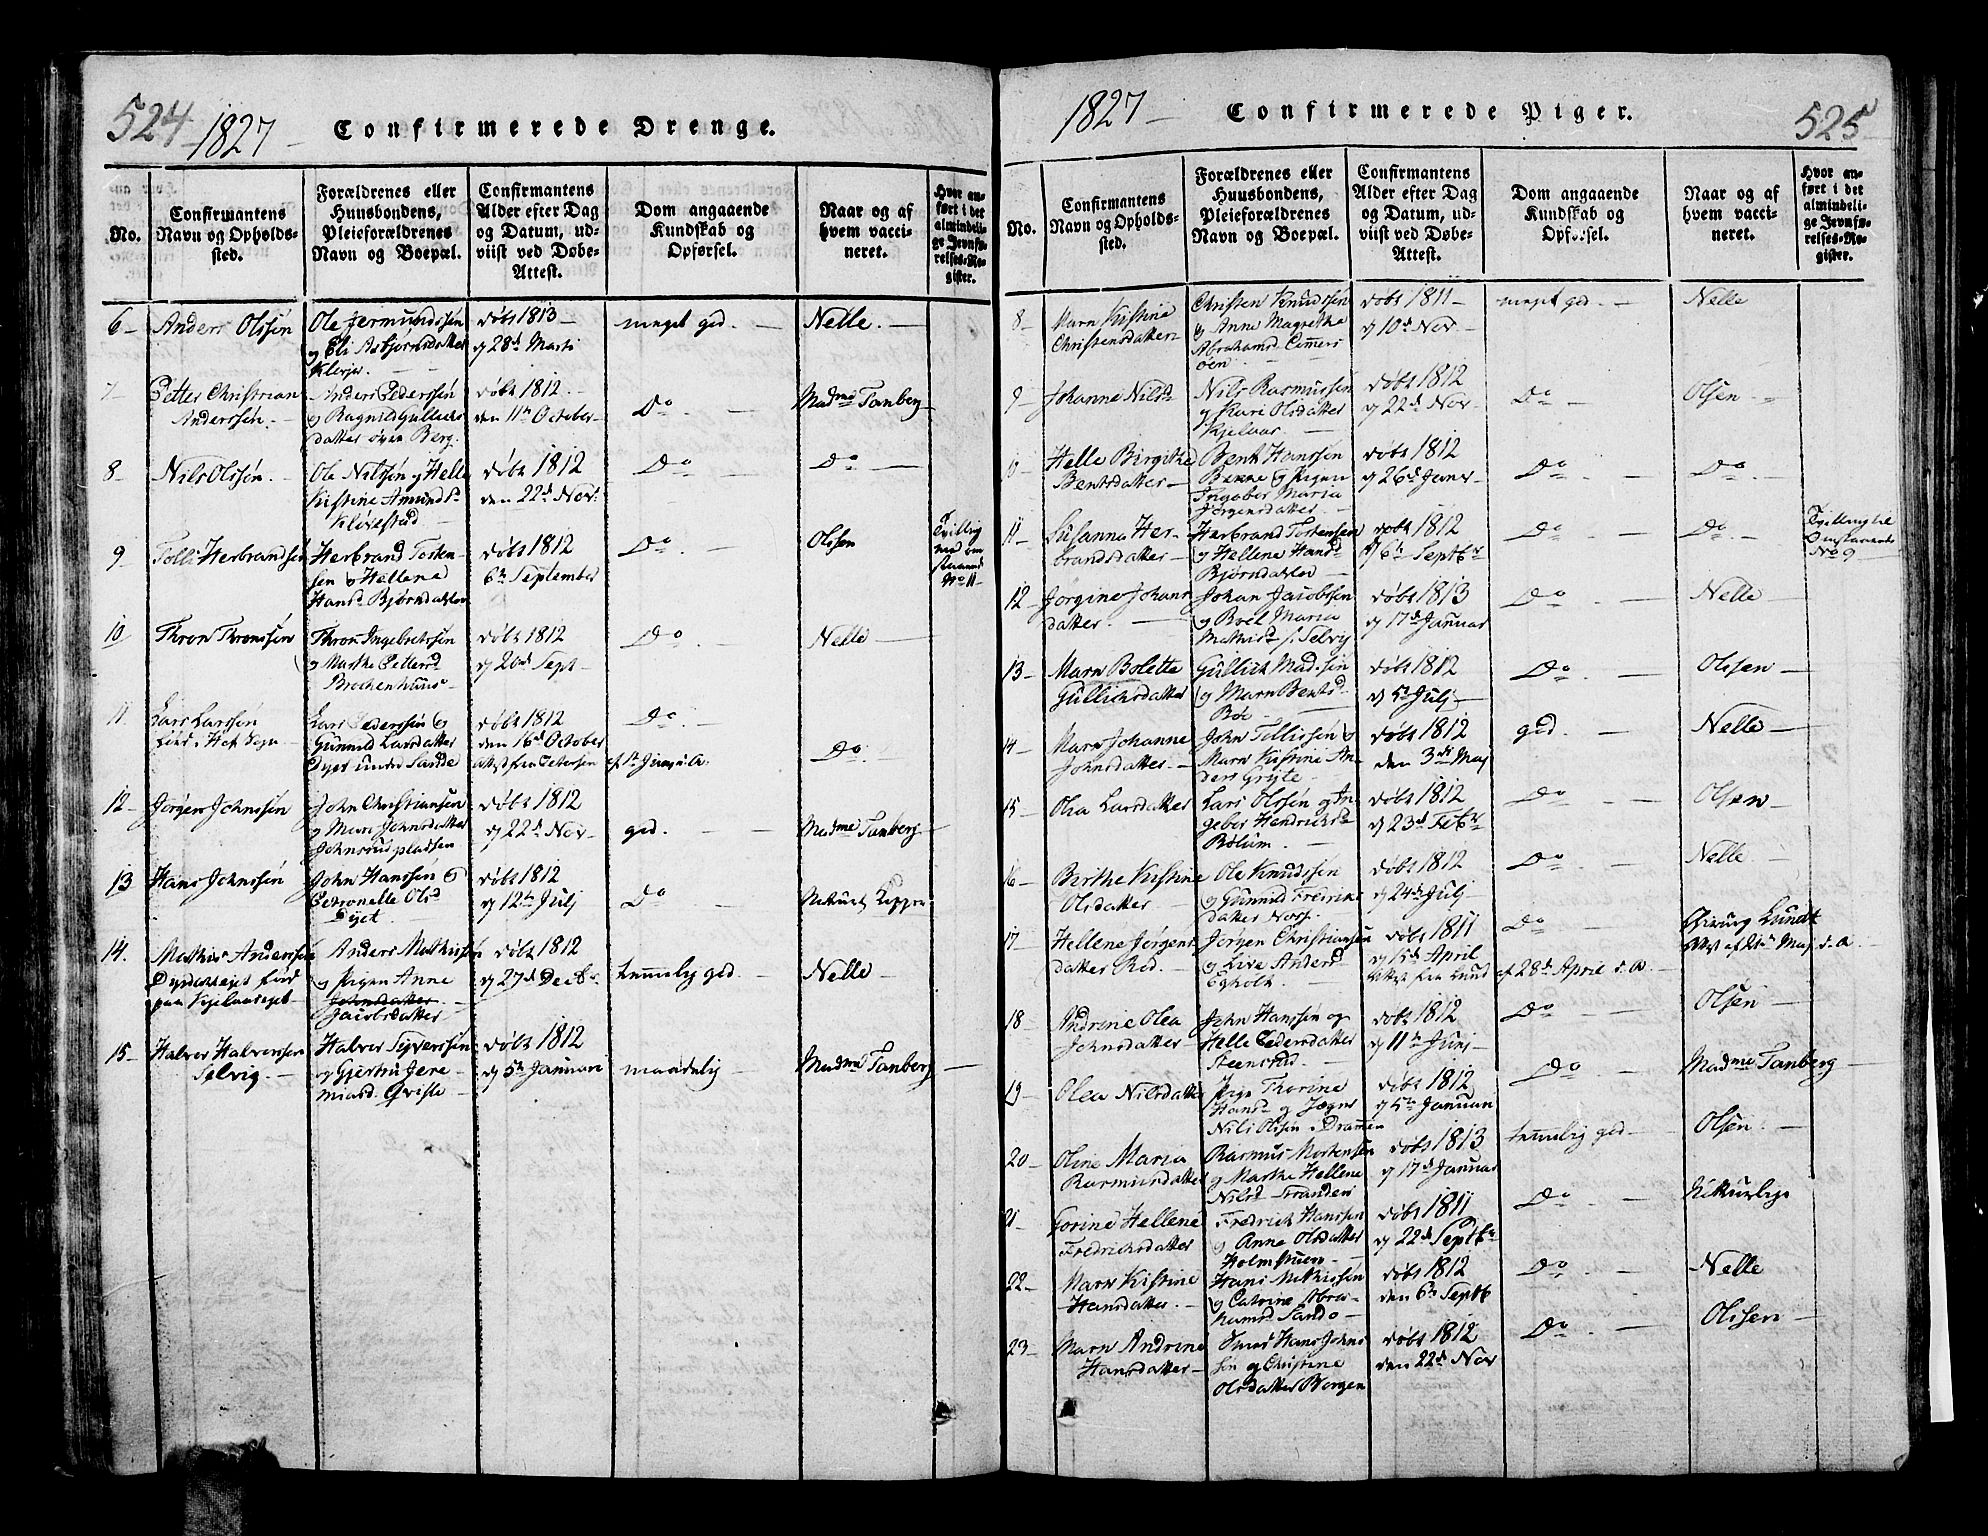 524
1827
Confirmerede Drenge.
No.
Confirmantens
Navn og Opholds-
sted.
Forældrenes eller
Huusbondens,
Pleieforældrenes
Navn og Boepæl.
Confirmantens
Alder efter Dag
og Datum, ud-
viist ved Døbe-
Attest.
Dom angaaende
Kundskab og
Opførsel.
Naar og af
hvem vacci-
neret.
Hvor an-
ført i det
almindeli-
ge Jevnfø-
relses-Re-
gister.
6 Anders Olssøn
Ole Jermundssøn
og Eli Asbjørnsdatter
døbt 1813
28d Marti
meget god
Nelle
7 Petter Christian
Anderssøn
Anders Pederssøn
og Ragnild Gullachs
datter øvre Berg
døbt 1812
den 11te October
Do
Madme Tanberg
8 Nils Olssøn
Ole Nilssøn og Helle
Kistine Amunds
døbt 1812
den 22d Nov.
Do
Do
9 Tolli Herbrandsen
Herbrand Torten-
sen og Hellene
Hansd Bjørndalen
døbt 1812
6te September
Do
Olsen
No 11
10 Thron Thronssøn
Thron Ingebretssøn
og Marthe Petersd
Brochenhuus
døbt 1812
20d Sept
Do
Nelle
11 Lars Larssøn
Lars Pederssøn og
Gunnild Larsdatter
Dyet under Sande
døbt 1812
den 16d October
Attest fra Petersen
Do
Do
12 Jørgen Johnssøn
John Christiansen
og Mari Johnsdatter
Johnsrudpladsen
døbt 1812
22d Nov
god
Madme Tanberg
13 Hans Johnssøn
John Hanssøn og
Petronelle Olsd
Dyet
døbt 1812
12te Julj
Do
14. Mathis Anderssøn
Anders Mathissøn
og Pigen Anne
Johnsdatter
Jacobsdatter
døbt 1812
27d Decbr
temmelig god
Nelle
15 Halvor Halvorssen
Selvig
Halvor Syverssøn
og Gjertru Jere
miasd. Qviste
døbt 1812
5te Januari
maadelig
Madme Tanberg
1827
Confirmerede Piger.
525
No.
Confirmantens
Navn og Opholds-
sted.
Forældrenes eller
Huusbondens,
Pleieforældrenes
Navn og Boepæl.
Confirmantens
Alder efter Dag
og Datum, ud-
viist ved Døbe-
Attest.
Dom angaaende
Kundskab og
Opførsel.
Naar og af
hvem vacci-
neret.
Hvor an-
ført i det
almindeli-
ge Jevnfø-
relses-Re-
gister.
8 Maren Kistine
Christensdatter
Christen Knudssøn
og Anne Magrethe
Abrahamsd
døbt 1811
10d Nov
meget god
Nelle
9 Johanne Nilsd
Nils Rasmussøn
og Kari Olsdatter
døbt 1812
22d Nov
Do
Olsen
10 Helle Birgithe
Bentsdatter
Bent Hanssøn
og Pigen
Ingebor Maria
Jørgensdatter
døbt 1812
26d Janr
Do
Do
11 Susanna Her-
brandsdatter
Herbrand Tortensen
og Hellene Hansd
Bjørndalen
døbt 1812
6te Septbr
Do
Do
Tvilling til
No 9
12 Jørgine Johans
datter
Johan Jacobssøn
og Boel Maria
Mathisd
døbt 1813
17d Januar
Do
Nelle
13 Maren Bolette
Gullichsdatter
Gullich Madssøn
og Maren Bentsd
Bøe
døbt 1812
5te Julj
Do
Olsen
14 Maren Johanne
Johnsdatter
John Tollissøn og
Maren Kistine An-
ders Gryte
døbt 1812
den 3die Maj
god
Nelle
15 Olia Larsdatter
Lars Olssøn og In-
gebor Hendrichsd
Bølum
døbt 1812
23d Febr
Do
Olsen
16 Birthe Kistine
Olsdatter
Ole Knudssøn
og Gunnild Fredrics
datter
døbt 1812
24d Julj
Do
Nelle
17 Hellene Jørgens
datter Rød
Jørgen Christiansen
og Live Andersd
Egholt
døbt 1811
15d April
Attest fra Lund
Do
af 28d April d. A.
Chirurg Lundt
18 Indrine Olea
Johnsdatter
John Hanssøn og
Helle Pedersdatter
Steensrud
døbt 1812
11te Junj
Do
Olsen
19 Olea Nilsdatter
Pige Thorine
Hansd og
Nils Olssøn i Drammen
døbt 1812
5te Januari
Do
Madme Tanberg
20 Oline Maria
Rasmusdatter
Rasmus Mortenssøn
og Marthe Hellene
Nilsd Stranden
døbt 1813
17d Januar
temmelig god
Olsen
21 Gorine Hellene
Fredrichsdatter
Fredrich Hanssøn
og Anne Olsdatter
døbt 1811
22d Septbr
Do
22 Maren Kistine
Hansdatter
Hans Mathissøn
og Catrine Abra-
hamsd Sando
døbt 1812
den 6te Septb
Do
Nelle
23 Maren Andrine
Hansdatter
Hans Johns
søn og Christine
Olsdatter Borgen
døbt 1812
den 22d Nov
Do
Olssen